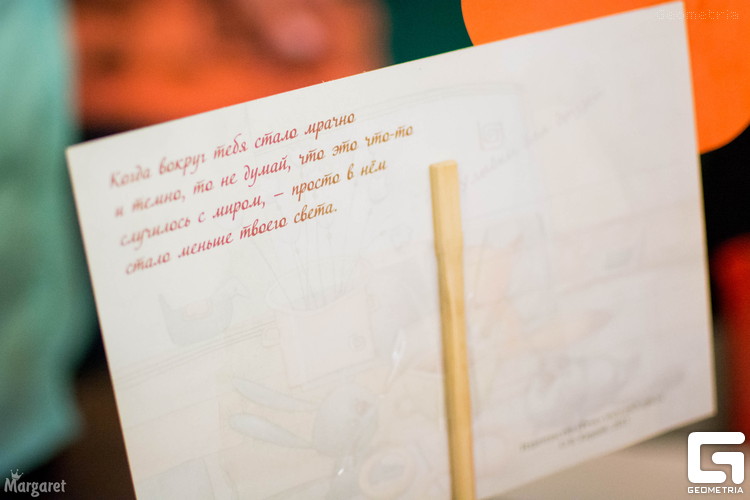 geometria
Когда вокруг тебя стало мрачно
и темно, то не думай, что это что-то
случилось с миром, – просто в нём
стало меньше твоего света.
Margaret
GEOMETRIA